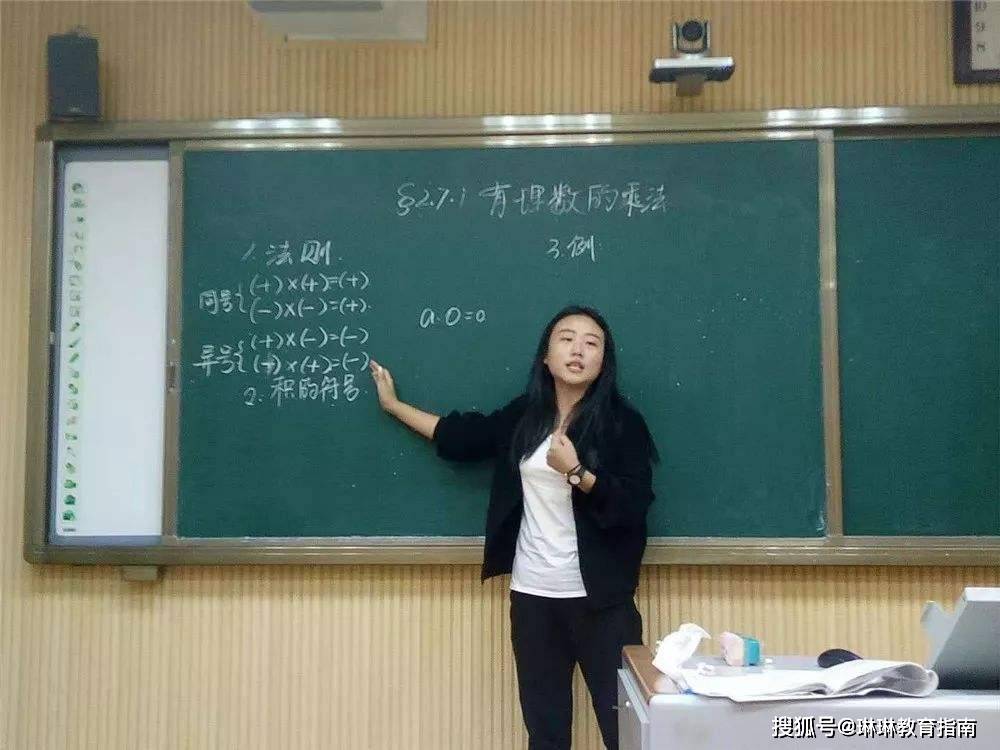 §2.7.1 有理数的乘法
1. 法则.
同号{(+)×(+)=(+)
(-)×(-)=(+).
异号{(+)×(-)=(-)
(+)×(+)=(-)
2. 积的符号.
a·0=0
3.例:
10
9
8
搜狐号@琳琳教育指南